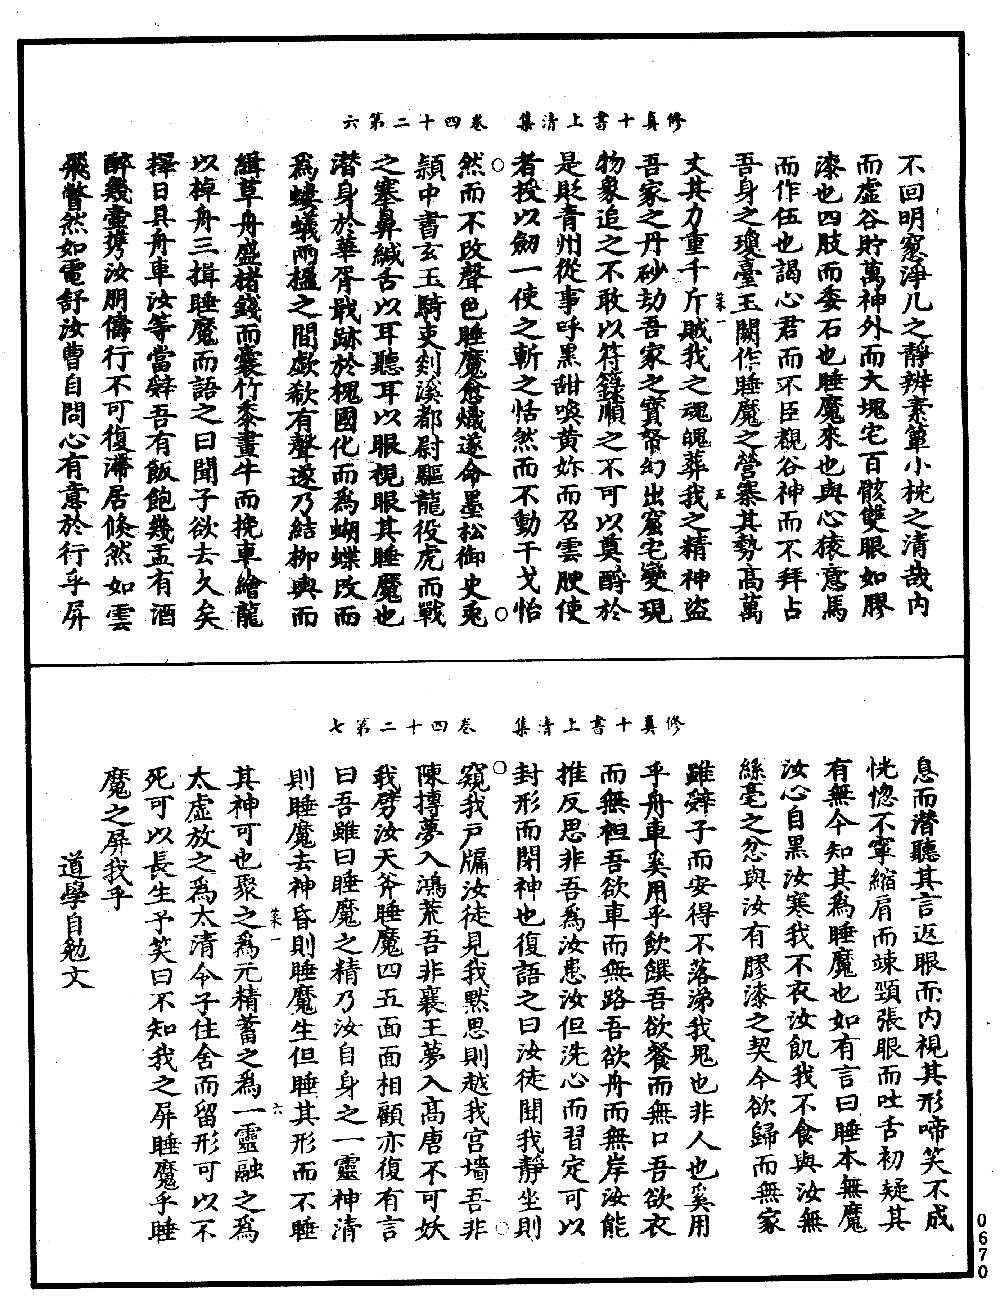 修真十書上清集　卷四十二第六
不回明窓淨几之靜辨素簟小枕之清哉內
而虛谷貯萬神外而大塊宅百骸雙眼如膠
漆也四肢而委石也睡魔來也與心猿意馬
而作伍也謁心君而不臣覲谷神而不拜占
吾身之瓊臺玉闕作睡魔之營寨其勢高萬
菜一
五
丈其力重千斤賊我之魂魄葬我之精神盜
吾家之丹砂劫吾家之寶幣幻出窟宅變現
物象追之不敢以符籙順之不可以奠爵於
是貶青州從事呼黑甜喚黃妳而召雲腴使
者授以劒一使之斬之恬然而不動干戈怡
然而不改聲色睡魔愈熾遂命墨松御史兎
頴中書玄玉騎吏剡溪都尉驅龍役虎而戰
之塞鼻緘舌以耳聽耳以眼視眼其睡魔也
潛身於華胥戢跡於槐國化而為蝴蝶改而
為螻蟻兩楹之間歔欷有聲遂乃結柳輿而
緝草舟盛楮錢而囊竹黍畫牛而挽車繪龍
以棹舟三揖睡魔而語之曰聞子欲去久矣
擇日具舟車汝等當辭吾有飯飽幾盂有酒
醉幾壷携汝朋儔行不可復滯居倏然如雲
飛瞥然如電舒汝曹自問心有意於行乎屏
修真十書上清集　卷四十二第七
息而潛聽其言返眼而內視其形啼笑不成
恍惚不寧縮肩而竦頸張眼而吐舌初疑其
有無今知其為睡魔也如有言曰睡本無魔
汝心自黑汝寒我不衣汝飢我不食與汝無
絲毫之忿與汝有膠漆之契今欲歸而無家
雖辭子而安得不落涕我鬼也非人也奚用
乎舟車奚用乎飲饌吾欲餐而無口吾欲衣
而無袒吾欲車而無路吾欲舟而無岸汝能
推反思非吾為汝患汝但洗心而習定可以
封形而閑神也復語之曰汝徒闘我靜坐則
窺我戶牖汝徒見我默思則越我宮墻吾非
陳摶夢入鴻荒吾非襄王夢入高唐不可妖
我劈汝天斧睡魔四五面面相顧亦復有言
曰吾雖曰睡魔之精乃汝自身之一靈神清
則睡魔去神昏則睡魔生但睡其形而不睡
菜一
六
其神可也聚之為元精蓄之為一靈融之為
太虛放之為太清今子住舍而留形可以不
死可以長生予笑曰不知我之屏睡魔乎睡
魔之屏我乎
道學自勉文
0670